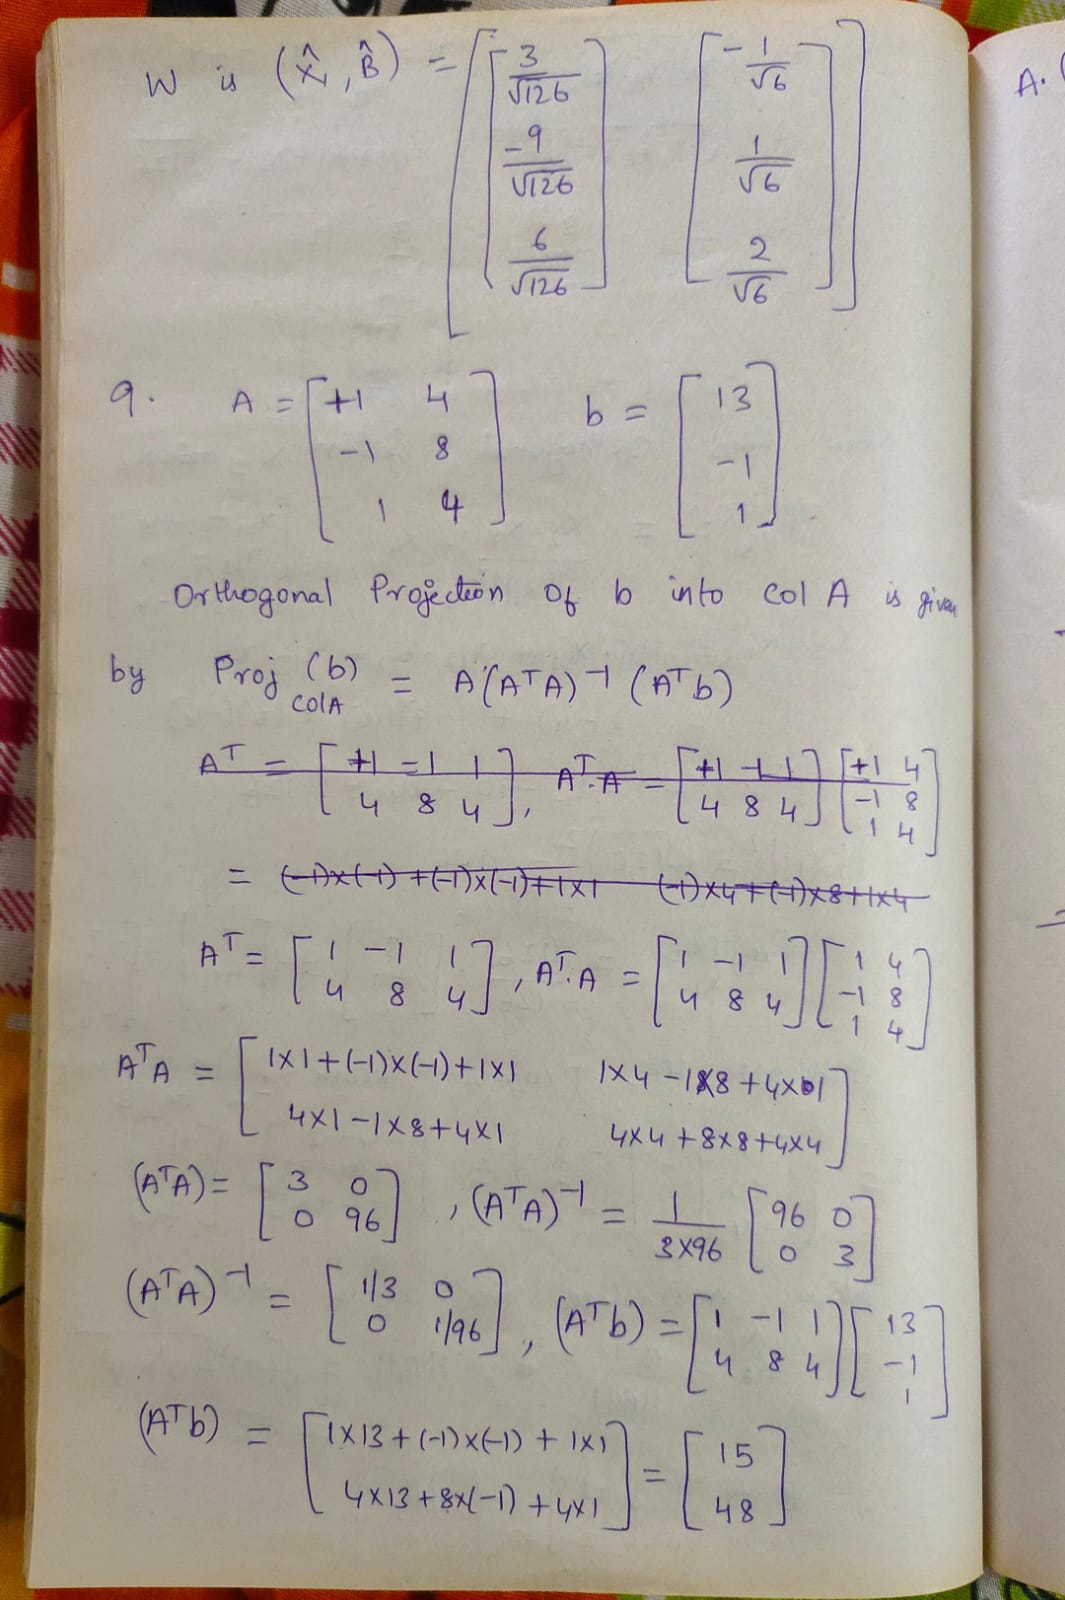 W is (X̂, B̂) = [[3/√126 -9/√126 6/√126] [-1/√6 1/√6 2/√6]]
A.
9. A = [+1 4; -1 8; 1 4] b = [13; -1; 1]
Orthogonal Projection of b into Col A is given
by Proj (b) Col A = A(AᵀA)⁻¹ (Aᵀb)
Aᵀ = [+1 -1 1; 4 8 4], Aᵀ.A = [+1 -1 1; 4 8 4] [+1 4; -1 8; 1 4]
= (-1)×(-1) +(-1)×(-1)+1×1 (-1)×4+(-1)×8+1×4
Aᵀ = [1 -1 1; 4 8 4], Aᵀ.A = [1 -1 1; 4 8 4] [1 4; -1 8; 1 4]
AᵀA = [1×1+(-1)×(-1)+1×1 1×4-1×8+4×1; 4×1-1×8+4×1 4×4+8×8+4×4]
(AᵀA) = [3 0; 0 96], (AᵀA)⁻¹ = 1/(3×96) [96 0; 0 3]
(AᵀA)⁻¹ = [1/3 0; 0 1/96], (Aᵀb) = [1 -1 1; 4 8 4] [13; -1; 1]
(Aᵀb) = [1×13+(-1)×(-1)+1×1; 4×13+8×(-1)+4×1] = [15; 48]